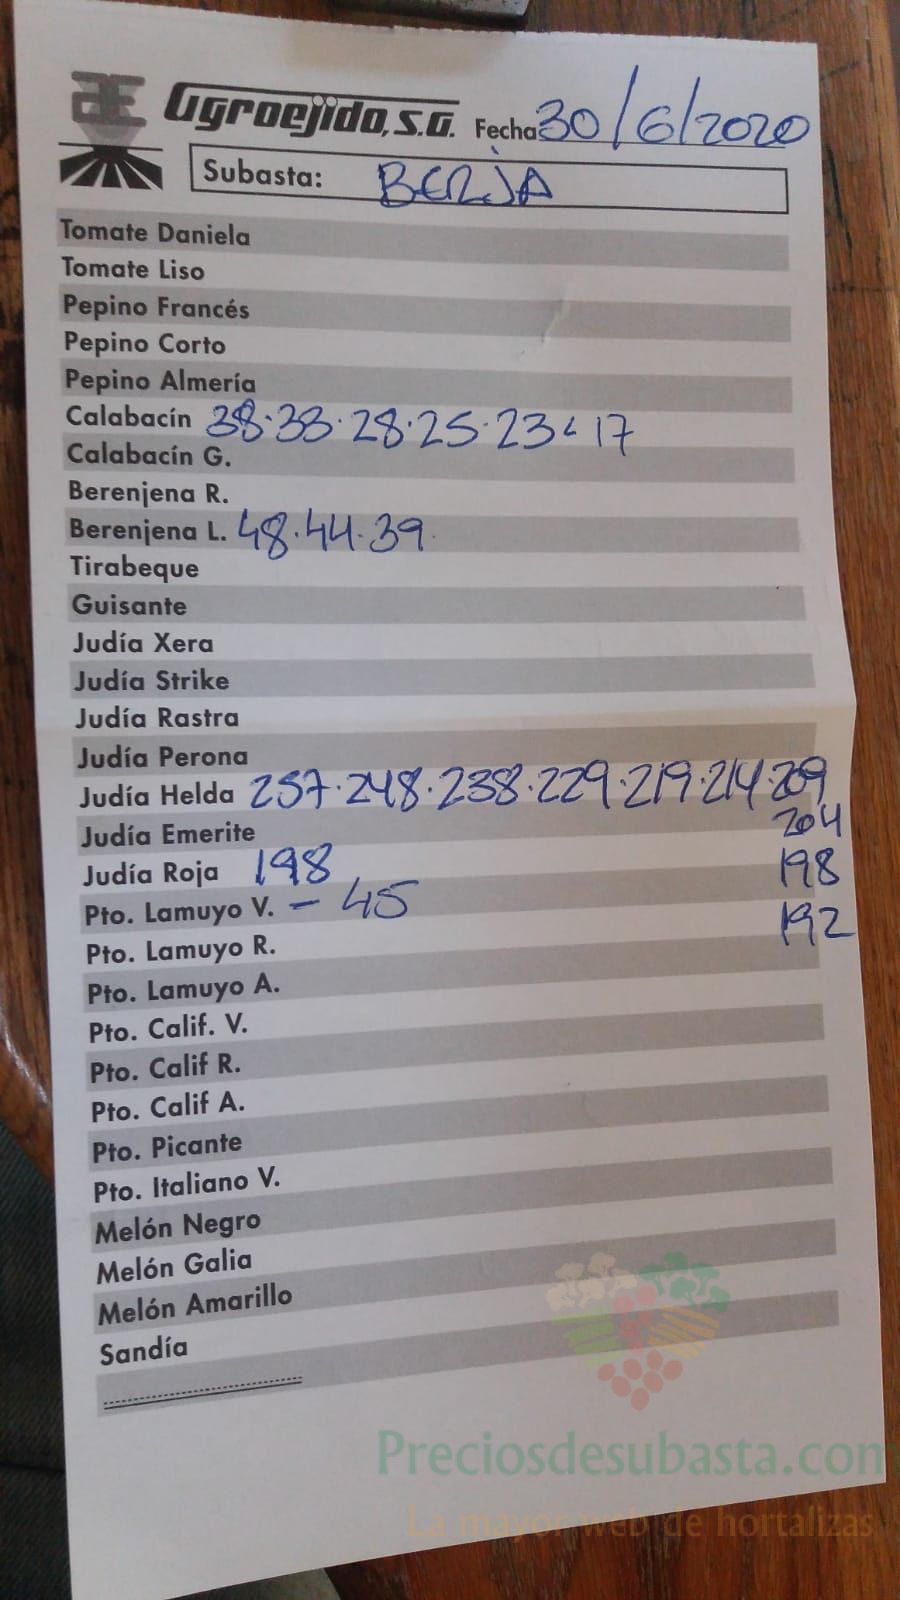 AE Agroejido, S.A. Fecha 30/6/2020
Subasta: BERJA
Tomate Daniela
Tomate Liso
Pepino Francés
Pepino Corto
Pepino Almería
Calabacín 38·33·28·25·23< 17
Calabacín G.
Berenjena R.
Berenjena L. 48·44·39
Tirabeque
Guisante
Judía Xera
Judía Strike
Judía Rastra
Judía Perona
Judía Helda 257·248·238·229·219·214·209
Judía Emerite 204
Judía Roja 198 198
Pto. Lamuyo V. - 45 192
Pto. Lamuyo R.
Pto. Lamuyo A.
Pto. Calif. V.
Pto. Calif R.
Pto. Calif A.
Pto. Picante
Pto. Italiano V.
Melón Negro
Melón Galia
Melón Amarillo
Sandía
Preciosdesubasta.com
La mayor web de hortalizas